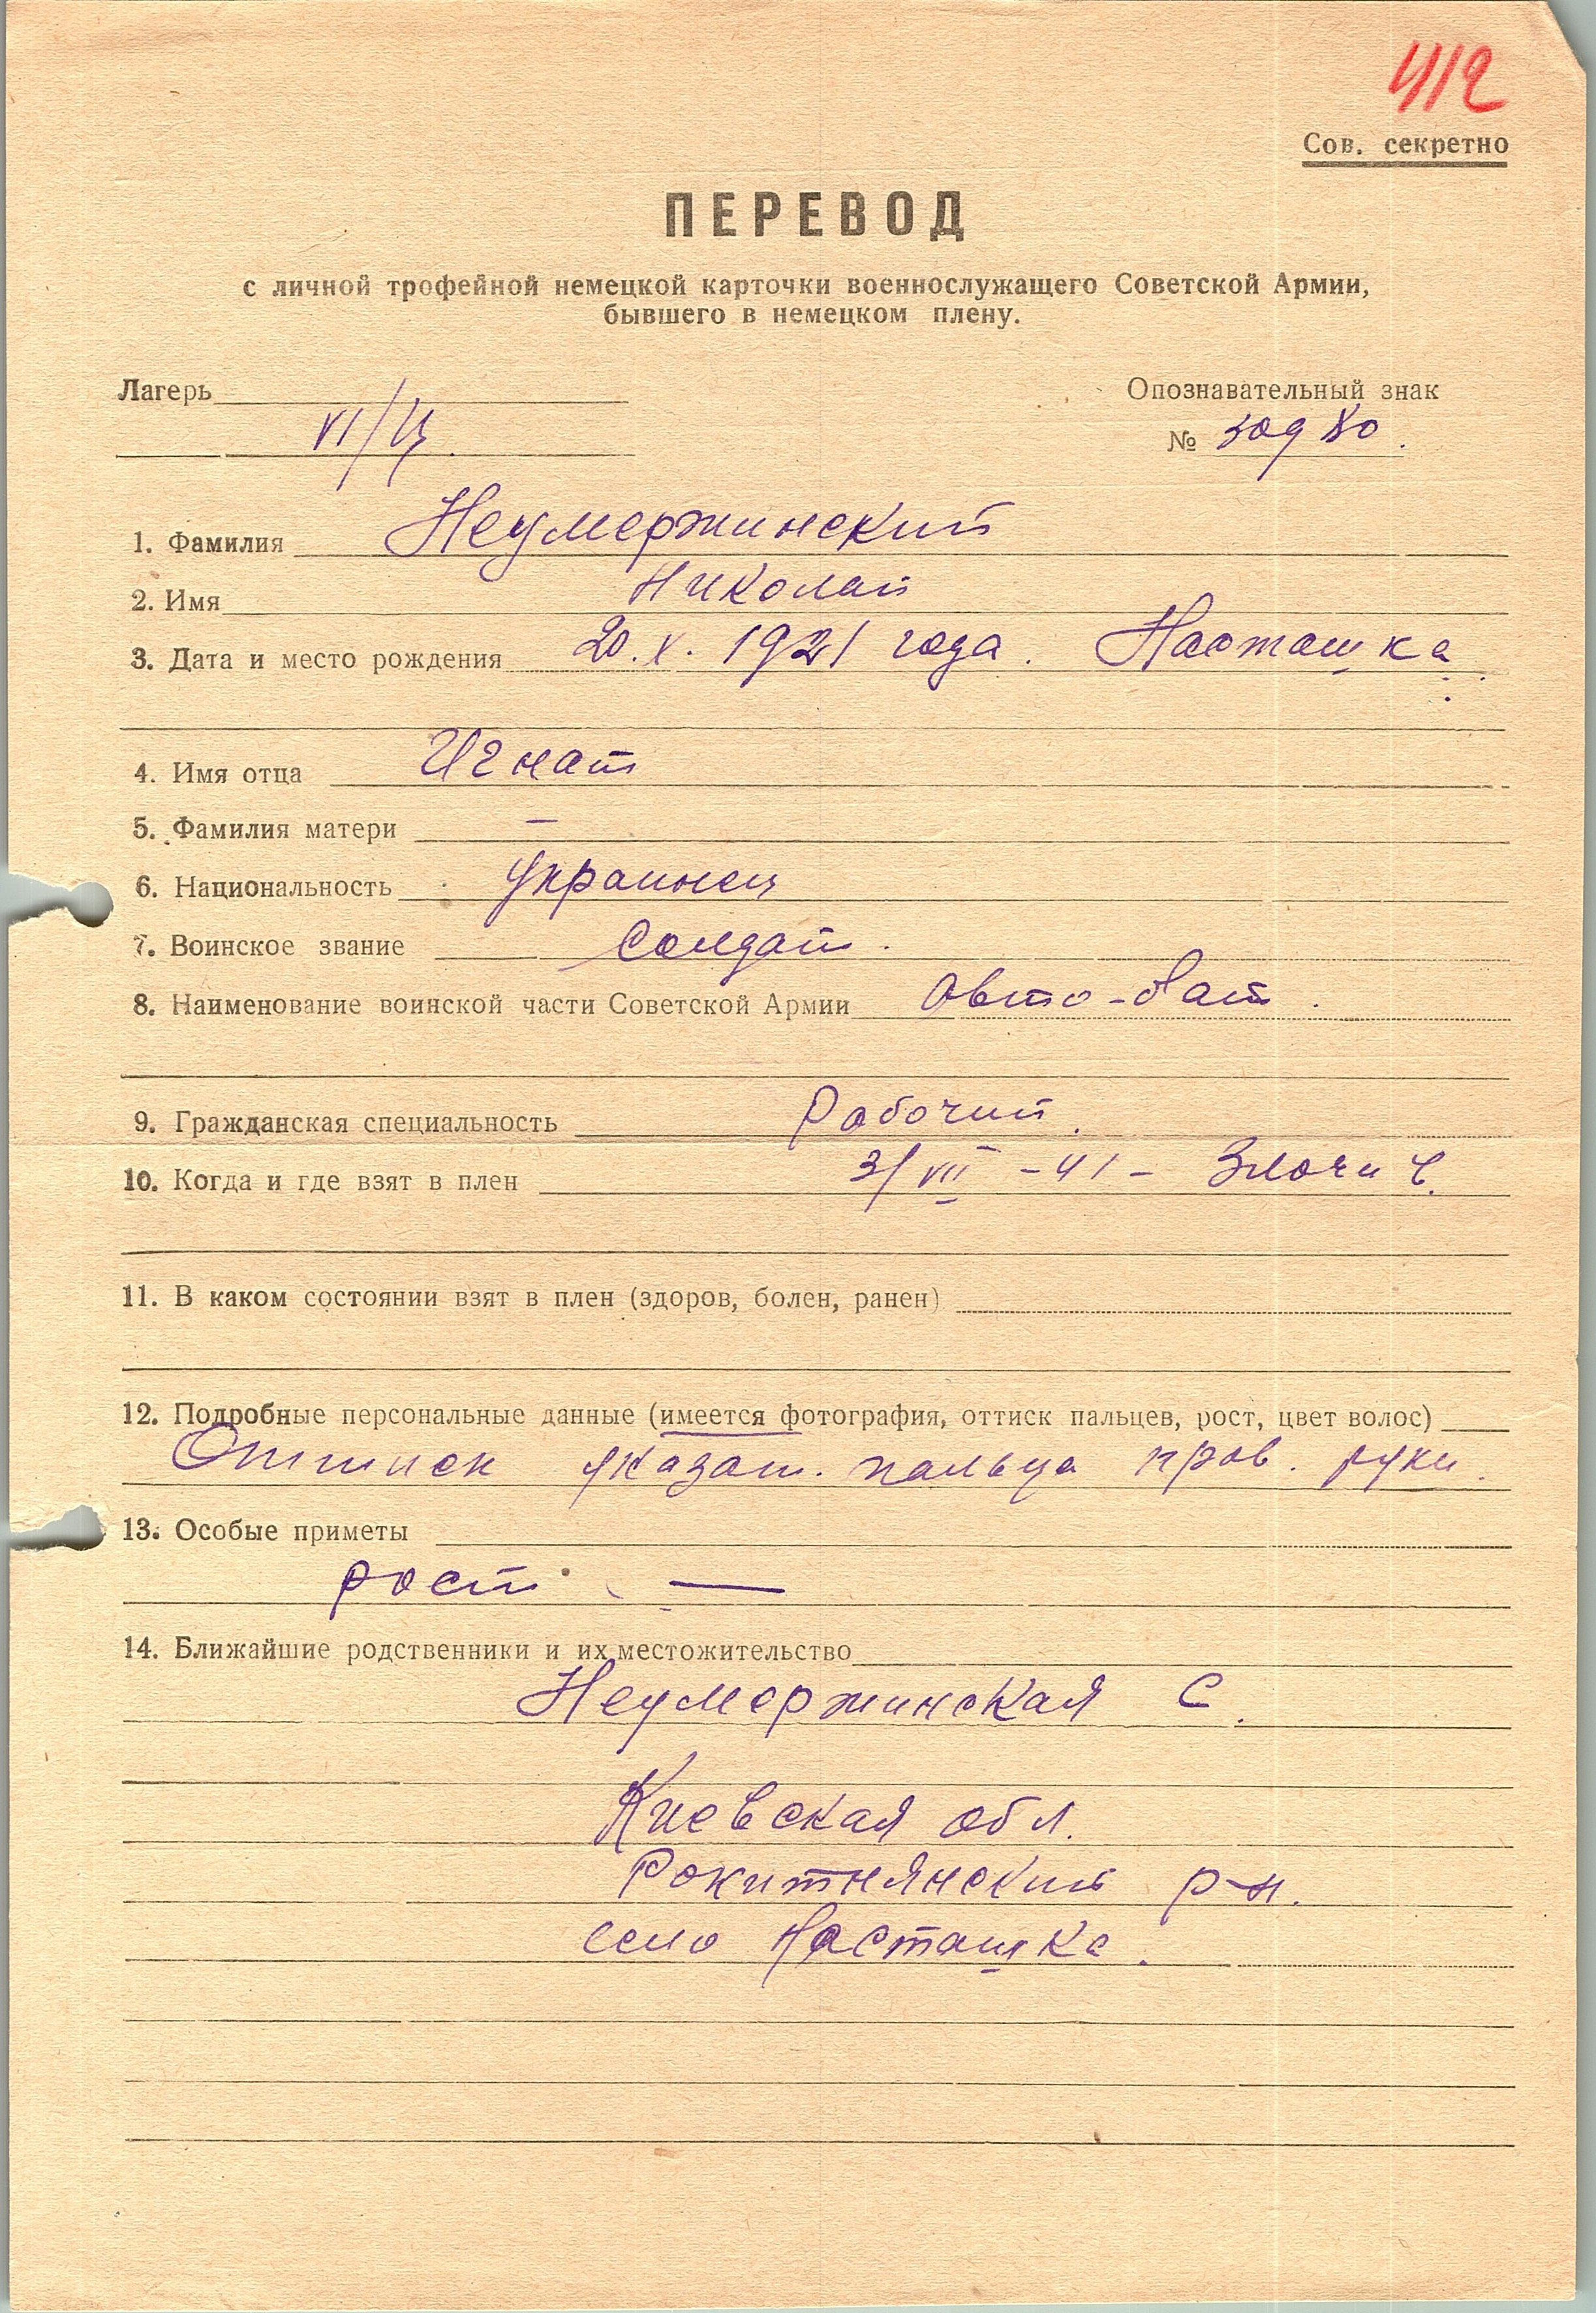 412
Сов. секретно
ПЕРЕВОД
с личной трофейной немецкой карточки военнослужащего Советской Армии,
бывшего в немецком плену.
Лагерь
Опознавательный знак
VI/Ц
№ 30980.
1. Фамилия Неумержинский
2. Имя Николай
3. Дата и место рождения 20.X.1921 года. Насташка
4. Имя отца Игнат
5. Фамилия матери —
6. Национальность украинец
7. Воинское звание Солдат.
8. Наименование воинской части Советской Армии Авто-бат.
9. Гражданская специальность Рабочий.
10. Когда и где взят в плен 3/VII-41-
11. В каком состоянии взят в плен (здоров, болен, ранен)
12. Подробные персональные данные (имеется фотография, оттиск пальцев, рост, цвет волос)
Оттиск указат. пальца прав. руки.
13. Особые приметы
рост —
14. Ближайшие родственники и их местожительство
Неумержинская С.
Киевская обл.
Рокитнянский р-н.
село Насташка.